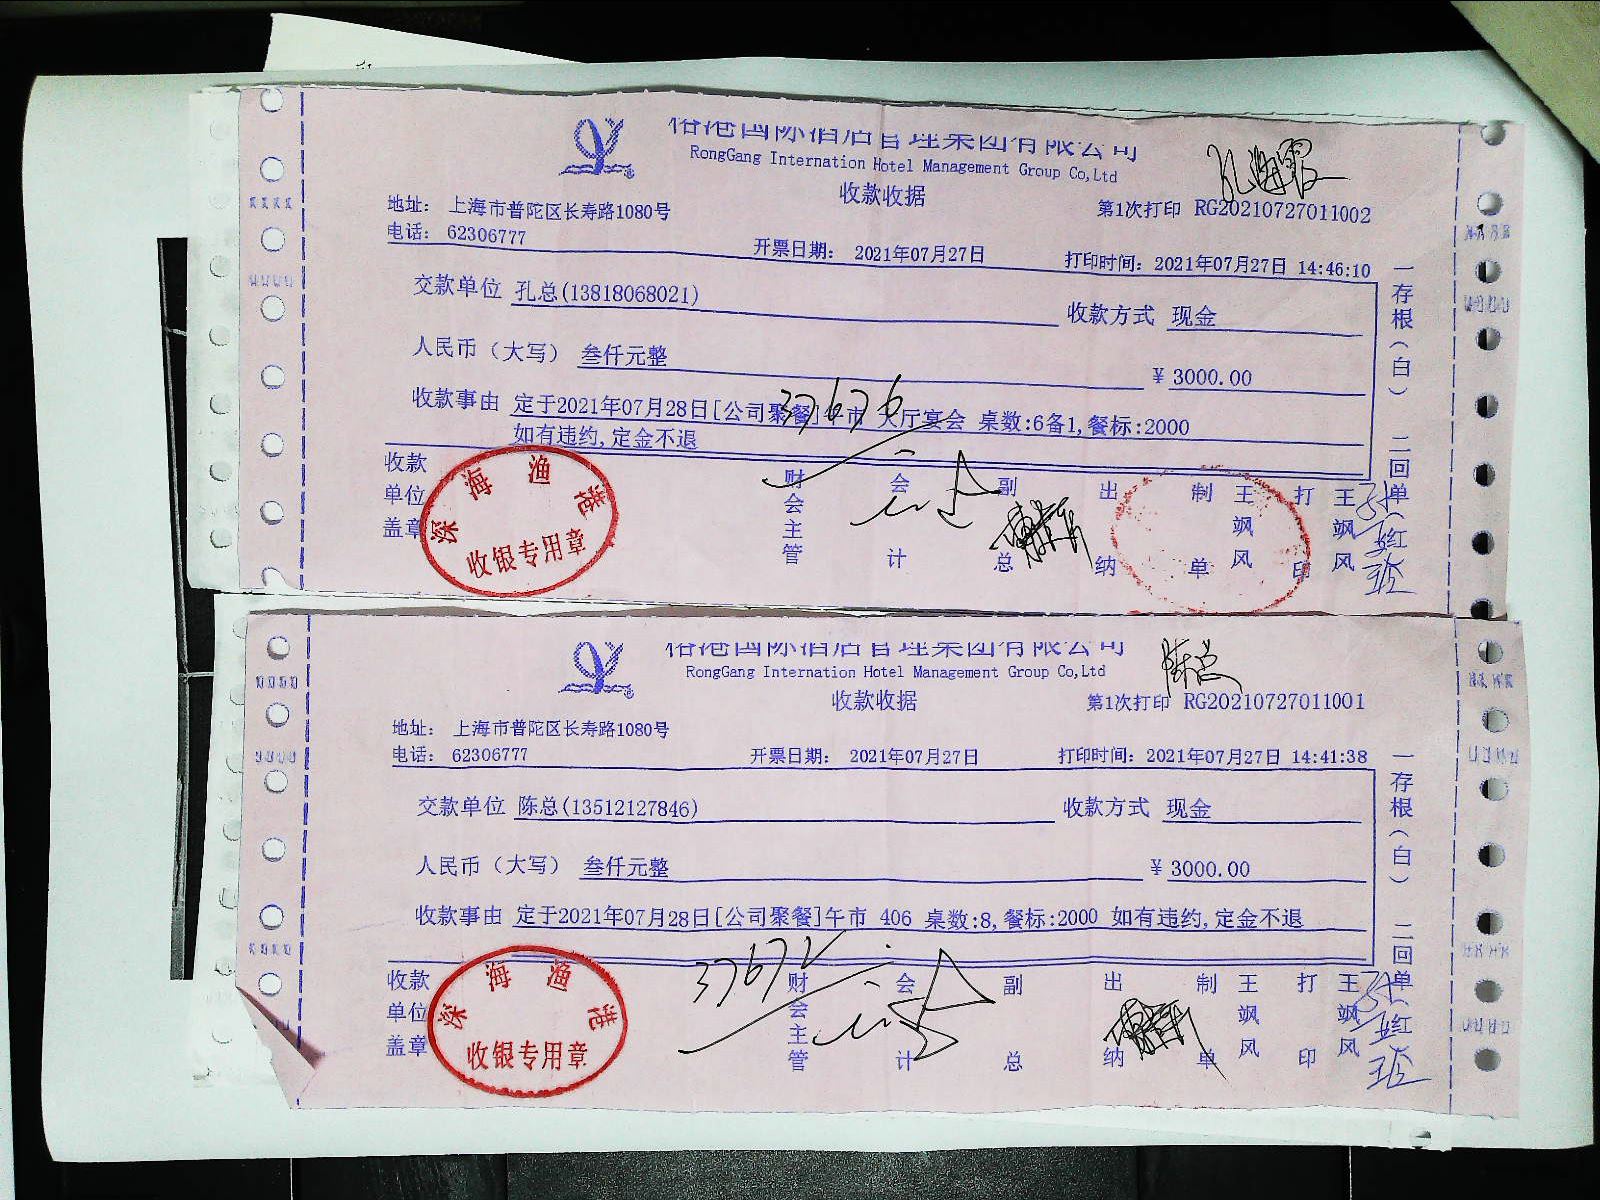 港国际酒店管理集团有限公司
RongGang Internation Hotel Management Group Co,Ltd
收款收据
地址： 上海市普陀区长寿路1080号
第1次打印 RG20210727011002
电话： 62306777
开票日期： 2021年07月27日
打印时间：2021年07月27日 14:46:10
交款单位 孔总(13818068021)
收款方式 现金
人民币（大写） 叁仟元整
￥ 3000.00
收款事由 定于2021年07月28日[公司聚餐]午市 大厅宴会 桌数:6备1,餐标:2000
如有违约,定金不退
37676
收款单位盖章
深海渔港
收银专用章
财会主管
会计
副总
出纳
制单
王飒风
打印
王飒风
一存根（白） 二回单（红）
港国际酒店管理集团有限公司
RongGang Internation Hotel Management Group Co,Ltd
陈总
收款收据
第1次打印 RG20210727011001
地址： 上海市普陀区长寿路1080号
电话： 62306777
开票日期： 2021年07月27日
打印时间：2021年07月27日 14:41:38
交款单位 陈总(13512127846)
收款方式 现金
人民币（大写） 叁仟元整
￥ 3000.00
收款事由 定于2021年07月28日[公司聚餐]午市 406 桌数:8,餐标:2000 如有违约,定金不退
37672
收款单位盖章
深海渔港
收银专用章
财会主管
会计
副总
出纳
制单
王飒风
打印
王飒风
一存根（白） 二回单（红）